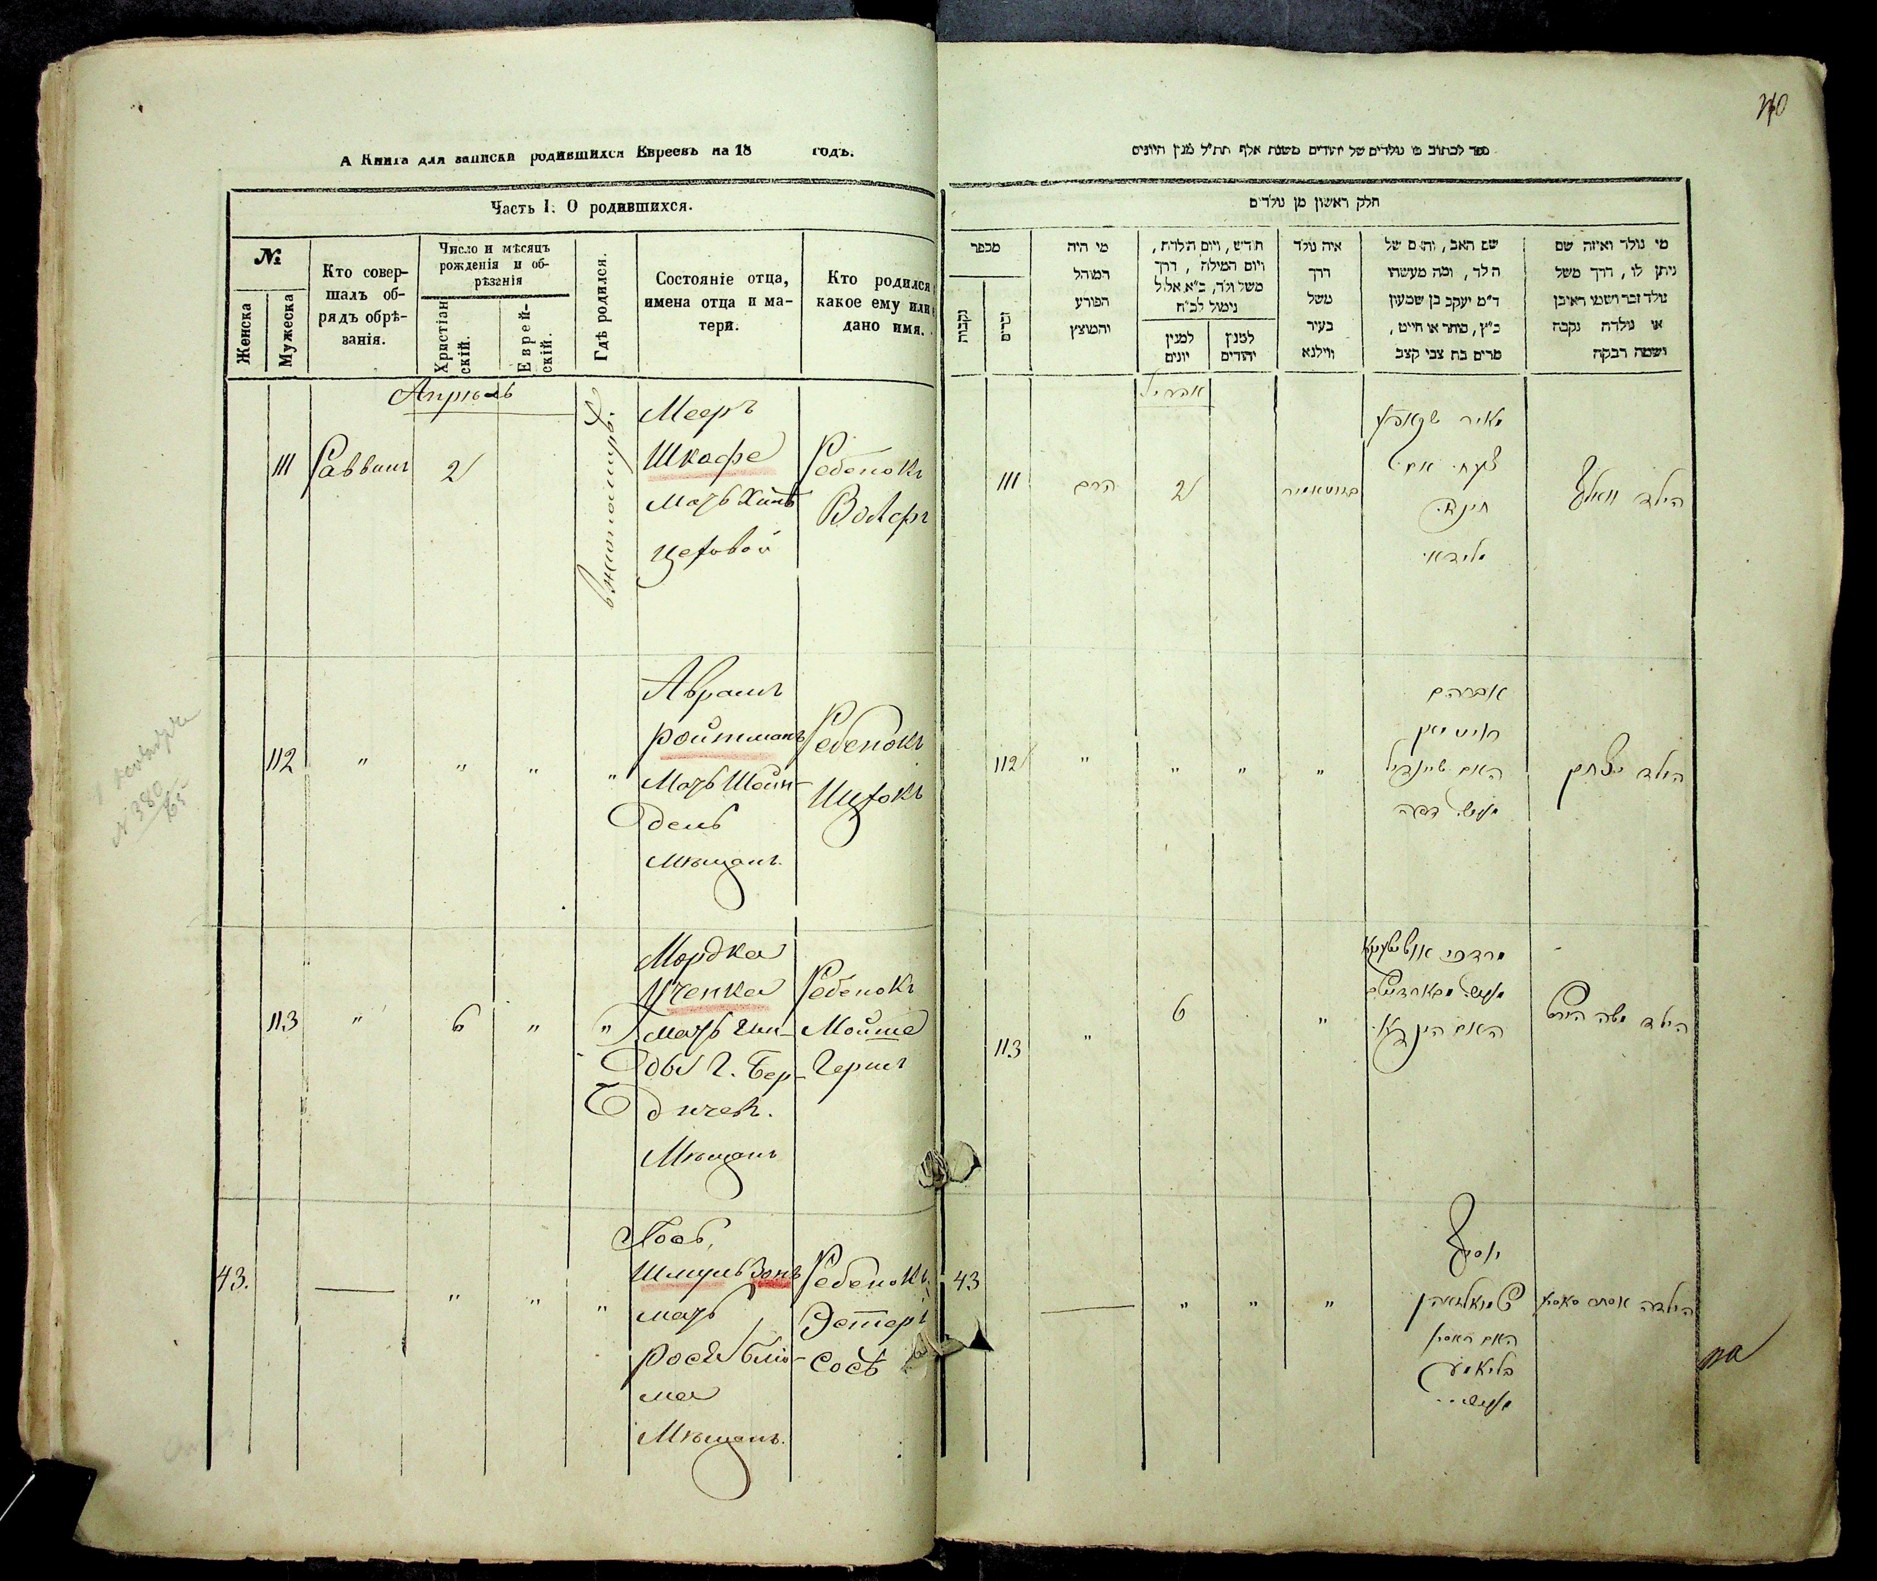 А Книга для записки родившихся Евреевъ на 18 годъ.
Часть I. О родившихся.
№
Женска
Мужеска
Кто совер-
шалъ об-
рядъ обрѣ-
занія.
Число и мѣсяцъ
рожденія и об-
рѣзанія
Христіан
скій.
Еврей-
скій.
Гдѣ родился.
Состояніе отца,
имена отца и ма-
тери.
Кто родился
какое ему или
дано имя.
Апрѣль
111
Раввинъ
2
в Житомирѣ.
Мееръ
Шкафе
мать Хинъ
цеховой
Ребенокъ
Волфъ
112
"
"
"
"
Аврамъ
Ройтманъ
Мать Шейн-
дель
Мѣщанъ.
Ребенокъ
Ицхокъ
113
"
6
"
"
Мордка
Учепка
мать Гин-
ды г. Бер-
дичев.
Мѣщанъ
Ребенокъ
Мойше
Герш
43.
"
"
"
Йосъ
Шмульзонъ
мать
Рося Блю-
ма
Мѣщанъ.
Ребенокъ
Эстеръ
Сосѣ
N 380
65
40
ספר לכתוב בו נולדים של יהודים משנת אלף תת״ל מנין היונים
חלק ראשון מן נולדים
מספר
נקבות
זכרים
מי היה
המוהל
הפורע
והמוצץ
חדש, ויום הולדת,
ויום המילה, דרך
משל ולד, כ״א אלול
נימול לכ״ח
למנין
יונים
למנין
יהודים
איה נולד
דרך
משל
בעיר
ווילנא
שם האב, והאם של
הלד, ומה מעשהו
ד״מ יעקב בן שמעון
כ״ץ, סוחר או חייט,
מרים בת צבי קצב
מי נולד ואיזה שם
ניתן לו, דרך משל
נולד זכר ושמו ראובן
או נולדה נקבה
ושמה רבקה
אפריל
111
הרב
2
מאיר
הילד וואלף
112
"
"
"
"
אברהם
רויטמאן
האם שיינדיל
הילד יצחק
113
"
6
"
מרדכי
האם הינדא
הילד משה הירש
43
"
"
"
יוסף
שמואלזאהן
האם ראסי
בליומע
הילדה אסתר סאסי